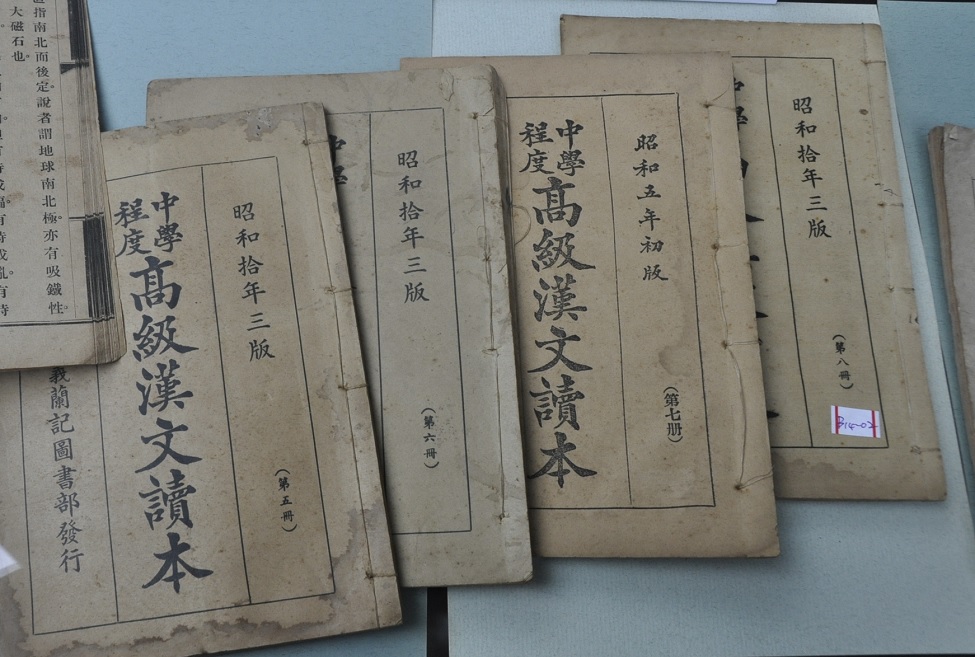 指南北而後定。說者謂地球南北極。亦有吸鐵性。
大磁石也。
昭和拾年三版
(第五冊)
中學程度
高級漢文讀本
義蘭記圖書部發行
昭和拾年三版
(第六冊)
中學
昭和五年初版
(第七册)
中學程度
高級漢文讀本
昭和拾年三版
(第八冊)